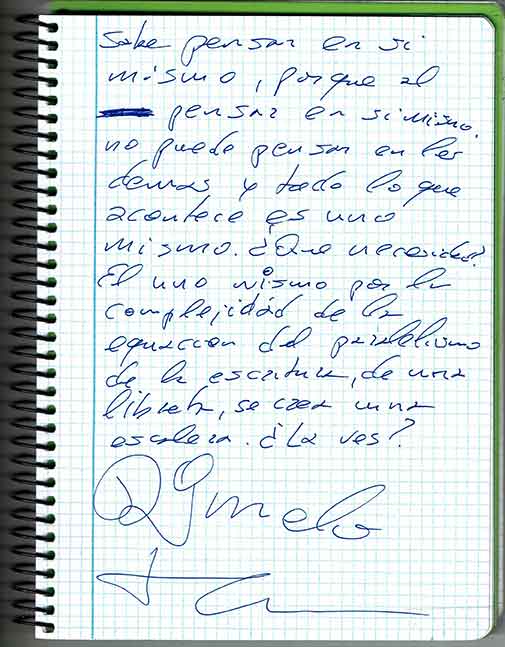 Sabe pensar en si
mismo, porque al
pensar en si mismo.
no puede pensar en los
demas y todo lo que
acontece es uno
mismo. ¿Que necesidad?
El uno mismo por la
complejidad de la
equaccion del paralelismo
de la escritura, de una
libreta, se crea una
escalera. ¿La ves?